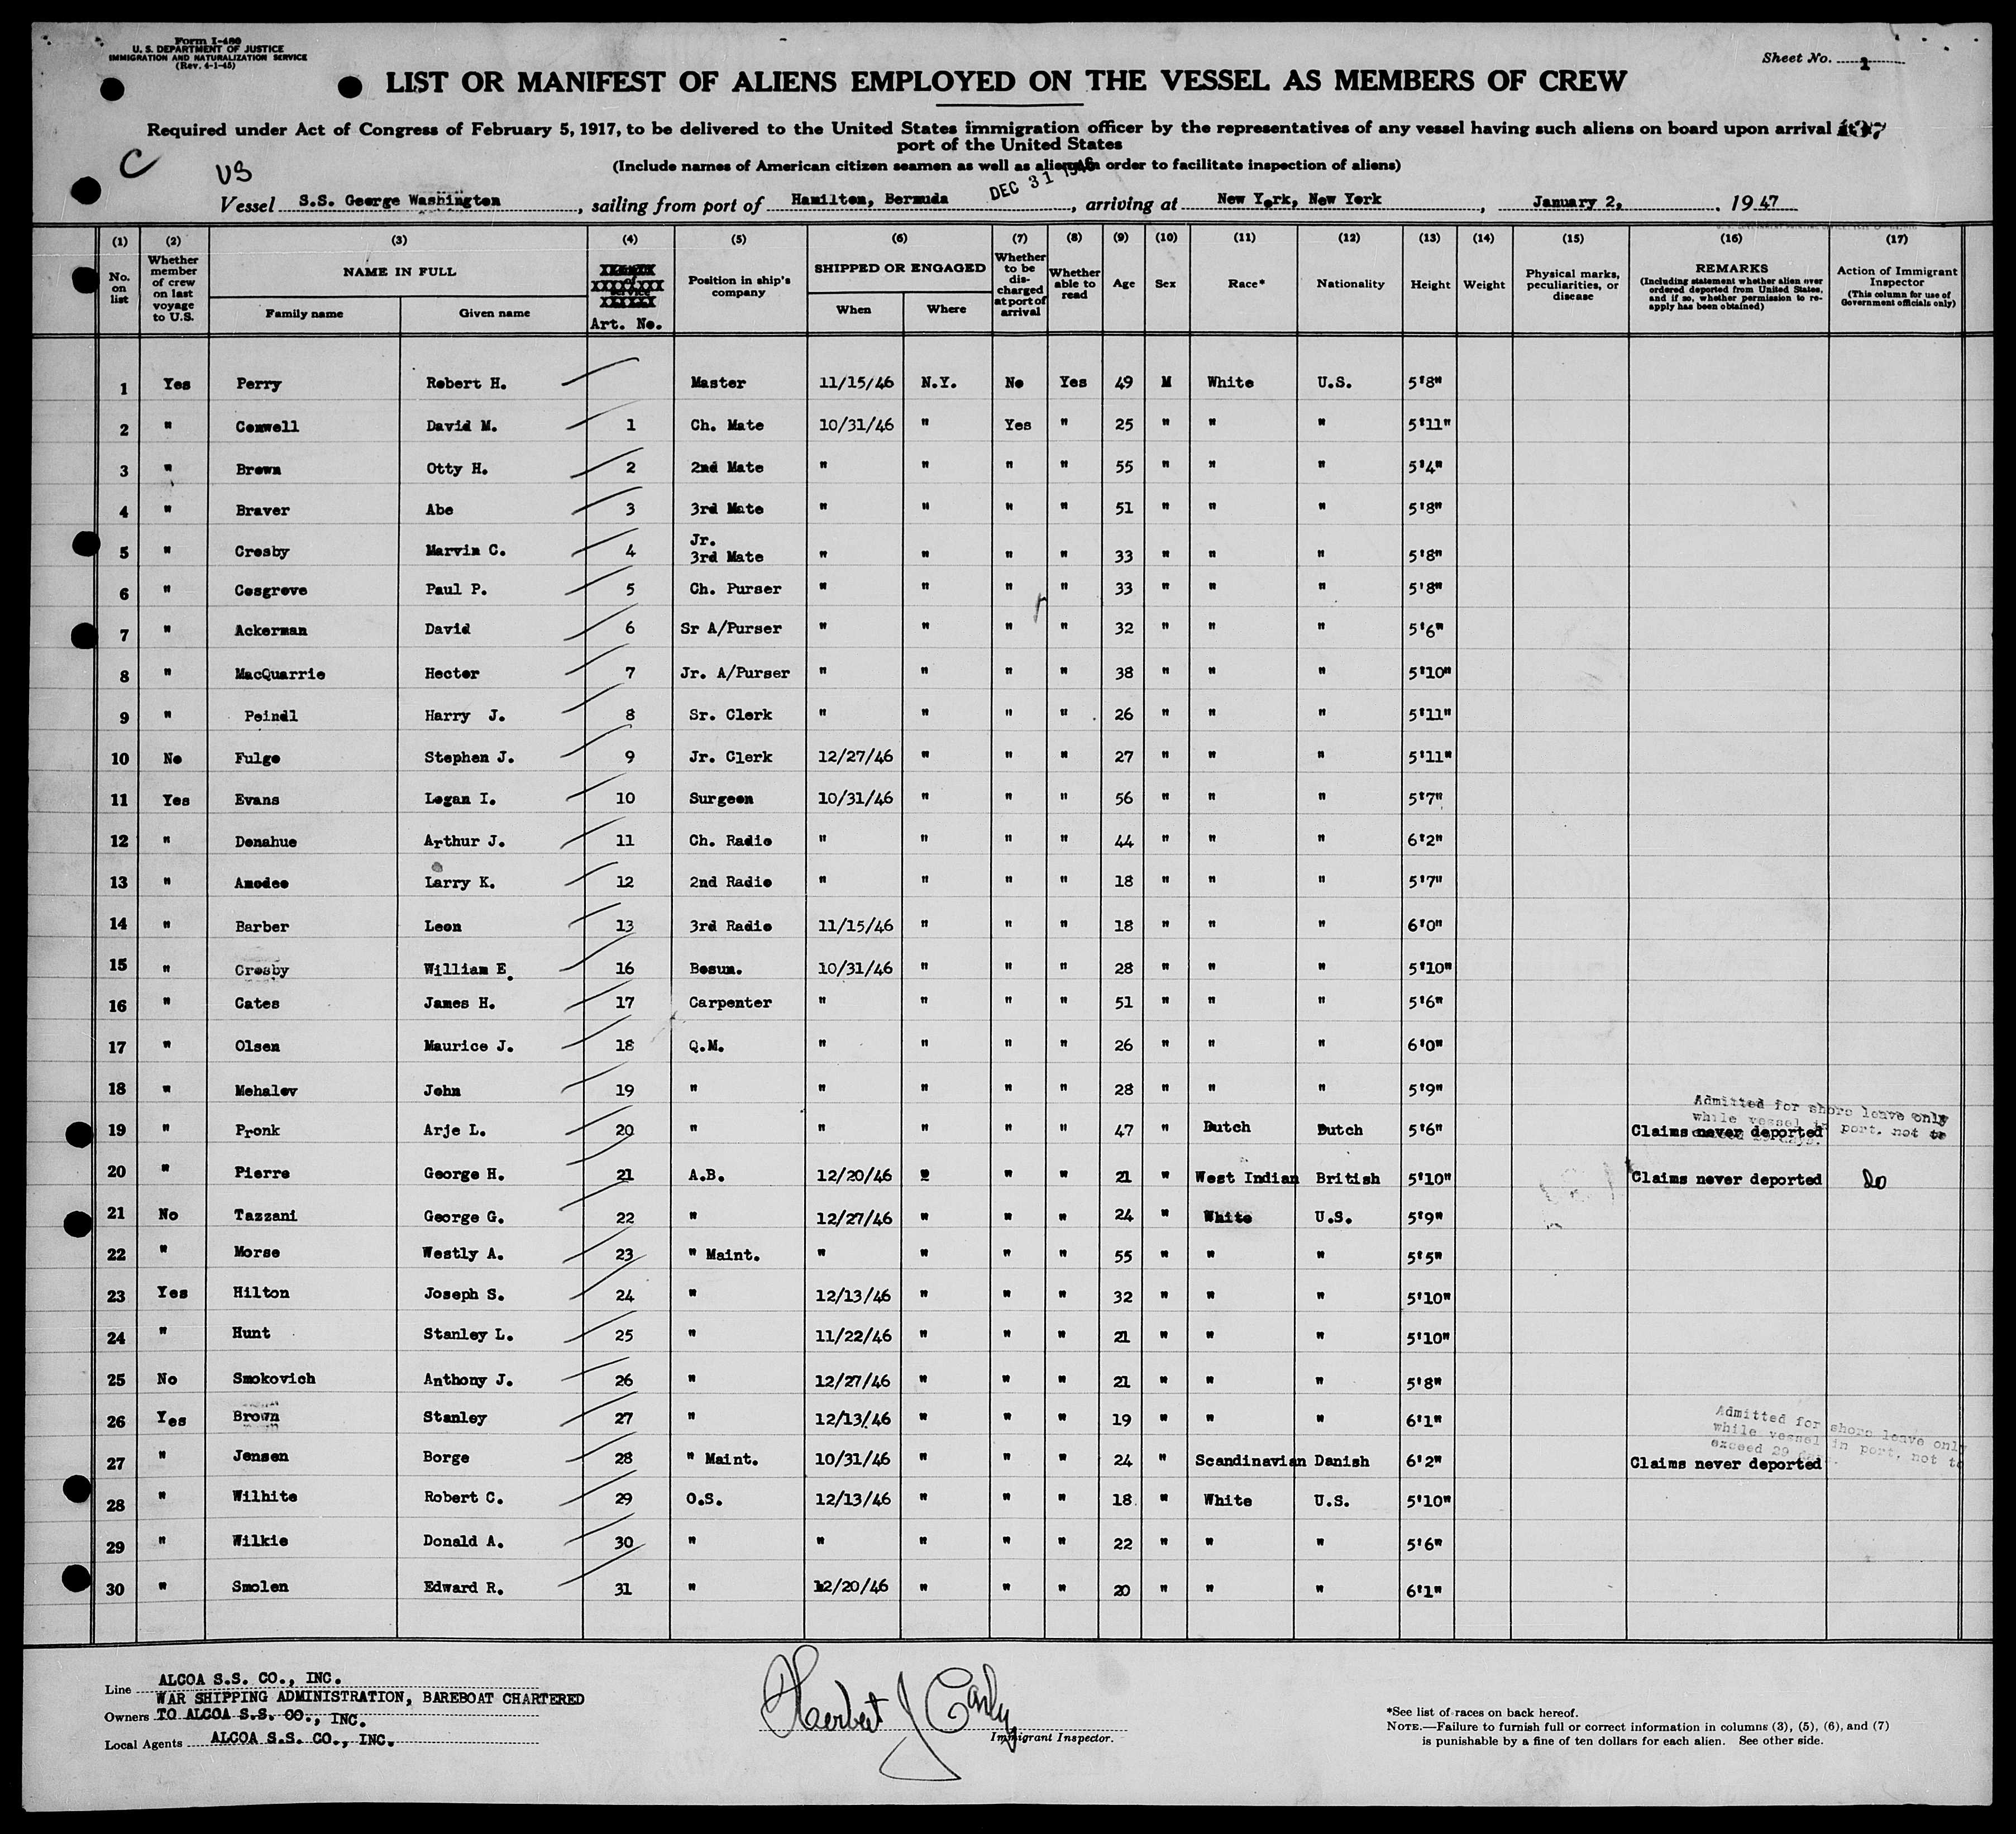 Form I-480
U. S. DEPARTMENT OF JUSTICE
IMMIGRATION AND NATURALIZATION SERVICE
(Rev. 4-1-45)
Sheet No. 1
LIST OR MANIFEST OF ALIENS EMPLOYED ON THE VESSEL AS MEMBERS OF CREW
Required under Act of Congress of February 5, 1917, to be delivered to the United States immigration officer by the representatives of any vessel having such aliens on board upon arrival
port of the United States
(Include names of American citizen seamen as well as aliens in order to facilitate inspection of aliens)
C
US
DEC 31 1946
Vessel S.S. George Washington, sailing from port of Hamilton, Bermuda, arriving at New York, New York, January 2, 1947
(1) No. on list
(2) Whether member of crew on last voyage to U.S.
(3) NAME IN FULL Family name Given name
(4) Art. No.
(5) Position in ship's company
(6) SHIPPED OR ENGAGED When Where
(7) Whether to be discharged at port of arrival
(8) Whether able to read
(9) Age
(10) Sex
(11) Race*
(12) Nationality
(13) Height
(14) Weight
(15) Physical marks, peculiarities, or disease
(16) REMARKS (Including statement whether alien over ordered deported from United States, and if so, whether permission to reapply has been obtained)
(17) Action of Immigrant Inspector (This column for use of Government officials only)
1 Yes Perry Robert H. Master 11/15/46 N.Y. No Yes 49 M White U.S. 5'8"
2 " Conwell David M. 1 Ch. Mate 10/31/46 " Yes " 25 " " " 5'11"
3 " Brown Otty H. 2 2nd Mate " " " " 55 " " " 5'4"
4 " Braver Abe 3 3rd Mate " " " " 51 " " " 5'8"
5 " Crosby Marvin C. 4 Jr. 3rd Mate " " " " 33 " " " 5'8"
6 " Cosgrove Paul P. 5 Ch. Purser " " " " 33 " " " 5'8"
7 " Ackerman David 6 Sr A/Purser " " " " 32 " " " 5'6"
8 " MacQuarrie Hector 7 Jr. A/Purser " " " " 38 " " " 5'10"
9 " Peindl Harry J. 8 Sr. Clerk " " " " 26 " " " 5'11"
10 No Fulge Stephen J. 9 Jr. Clerk 12/27/46 " " " 27 " " " 5'11"
11 Yes Evans Logan I. 10 Surgeon 10/31/46 " " " 56 " " " 5'7"
12 " Donahue Arthur J. 11 Ch. Radio " " " " 44 " " " 6'2"
13 " Amodeo Larry K. 12 2nd Radio " " " " 18 " " " 5'7"
14 " Barber Leon 13 3rd Radio 11/15/46 " " " 18 " " " 6'0"
15 " Crosby William E. 16 Bosun. 10/31/46 " " " 28 " " " 5'10"
16 " Cates James H. 17 Carpenter " " " " 51 " " " 5'6"
17 " Olsen Maurice J. 18 Q.M. " " " " 26 " " " 6'0"
18 " Mehalov John 19 " " " " " 28 " " " 5'9"
19 " Pronk Arje L. 20 " " " " " 47 " Dutch Dutch 5'6" Claims never deported
Admitted for shore leave only
while vessel in port, not to
20 " Pierre George H. 21 A.B. 12/20/46 " " " 21 " West Indian British 5'10" Claims never deported do
21 No Tazzani George G. 22 " 12/27/46 " " " 24 " White U.S. 5'9"
22 " Morse Westly A. 23 " Maint. " " " " 55 " " " 5'5"
23 Yes Hilton Joseph S. 24 " 12/13/46 " " " 32 " " " 5'10"
24 " Hunt Stanley L. 25 " 11/22/46 " " " 21 " " " 5'10"
25 No Smokovich Anthony J. 26 " 12/27/46 " " " 21 " " " 5'8"
26 Yes Brown Stanley 27 " 12/13/46 " " " 19 " " " 6'1"
Admitted for shore leave only
while vessel in port, not to
exceed 29 days.
27 " Jensen Borge 28 " Maint. 10/31/46 " " " 24 " Scandinavian Danish 6'2" Claims never deported
28 " Wilhite Robert C. 29 O.S. 12/13/46 " " " 18 " White U.S. 5'10"
29 " Wilkie Donald A. 30 " " " " " 22 " " " 5'6"
30 " Smolen Edward R. 31 " 12/20/46 " " " 20 " " " 6'1"
Line ALCOA S.S. CO., INC.
WAR SHIPPING ADMINISTRATION, BAREBOAT CHARTERED
Owners TO ALCOA S.S. CO., INC.
Local Agents ALCOA S.S. CO., INC.
Herbert J
Immigrant Inspector.
*See list of races on back hereof.
NOTE.—Failure to furnish full or correct information in columns (3), (5), (6), and (7)
is punishable by a fine of ten dollars for each alien. See other side.